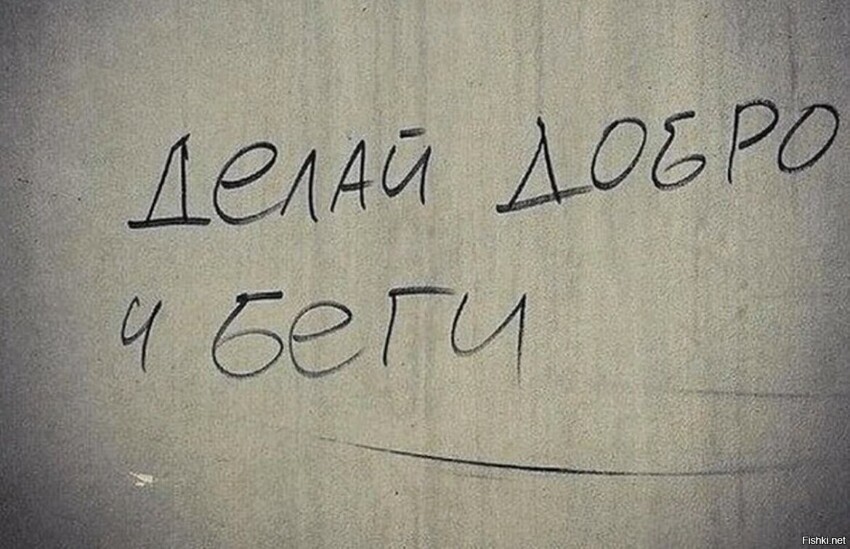 Делай добро
и беги
Fishki.net